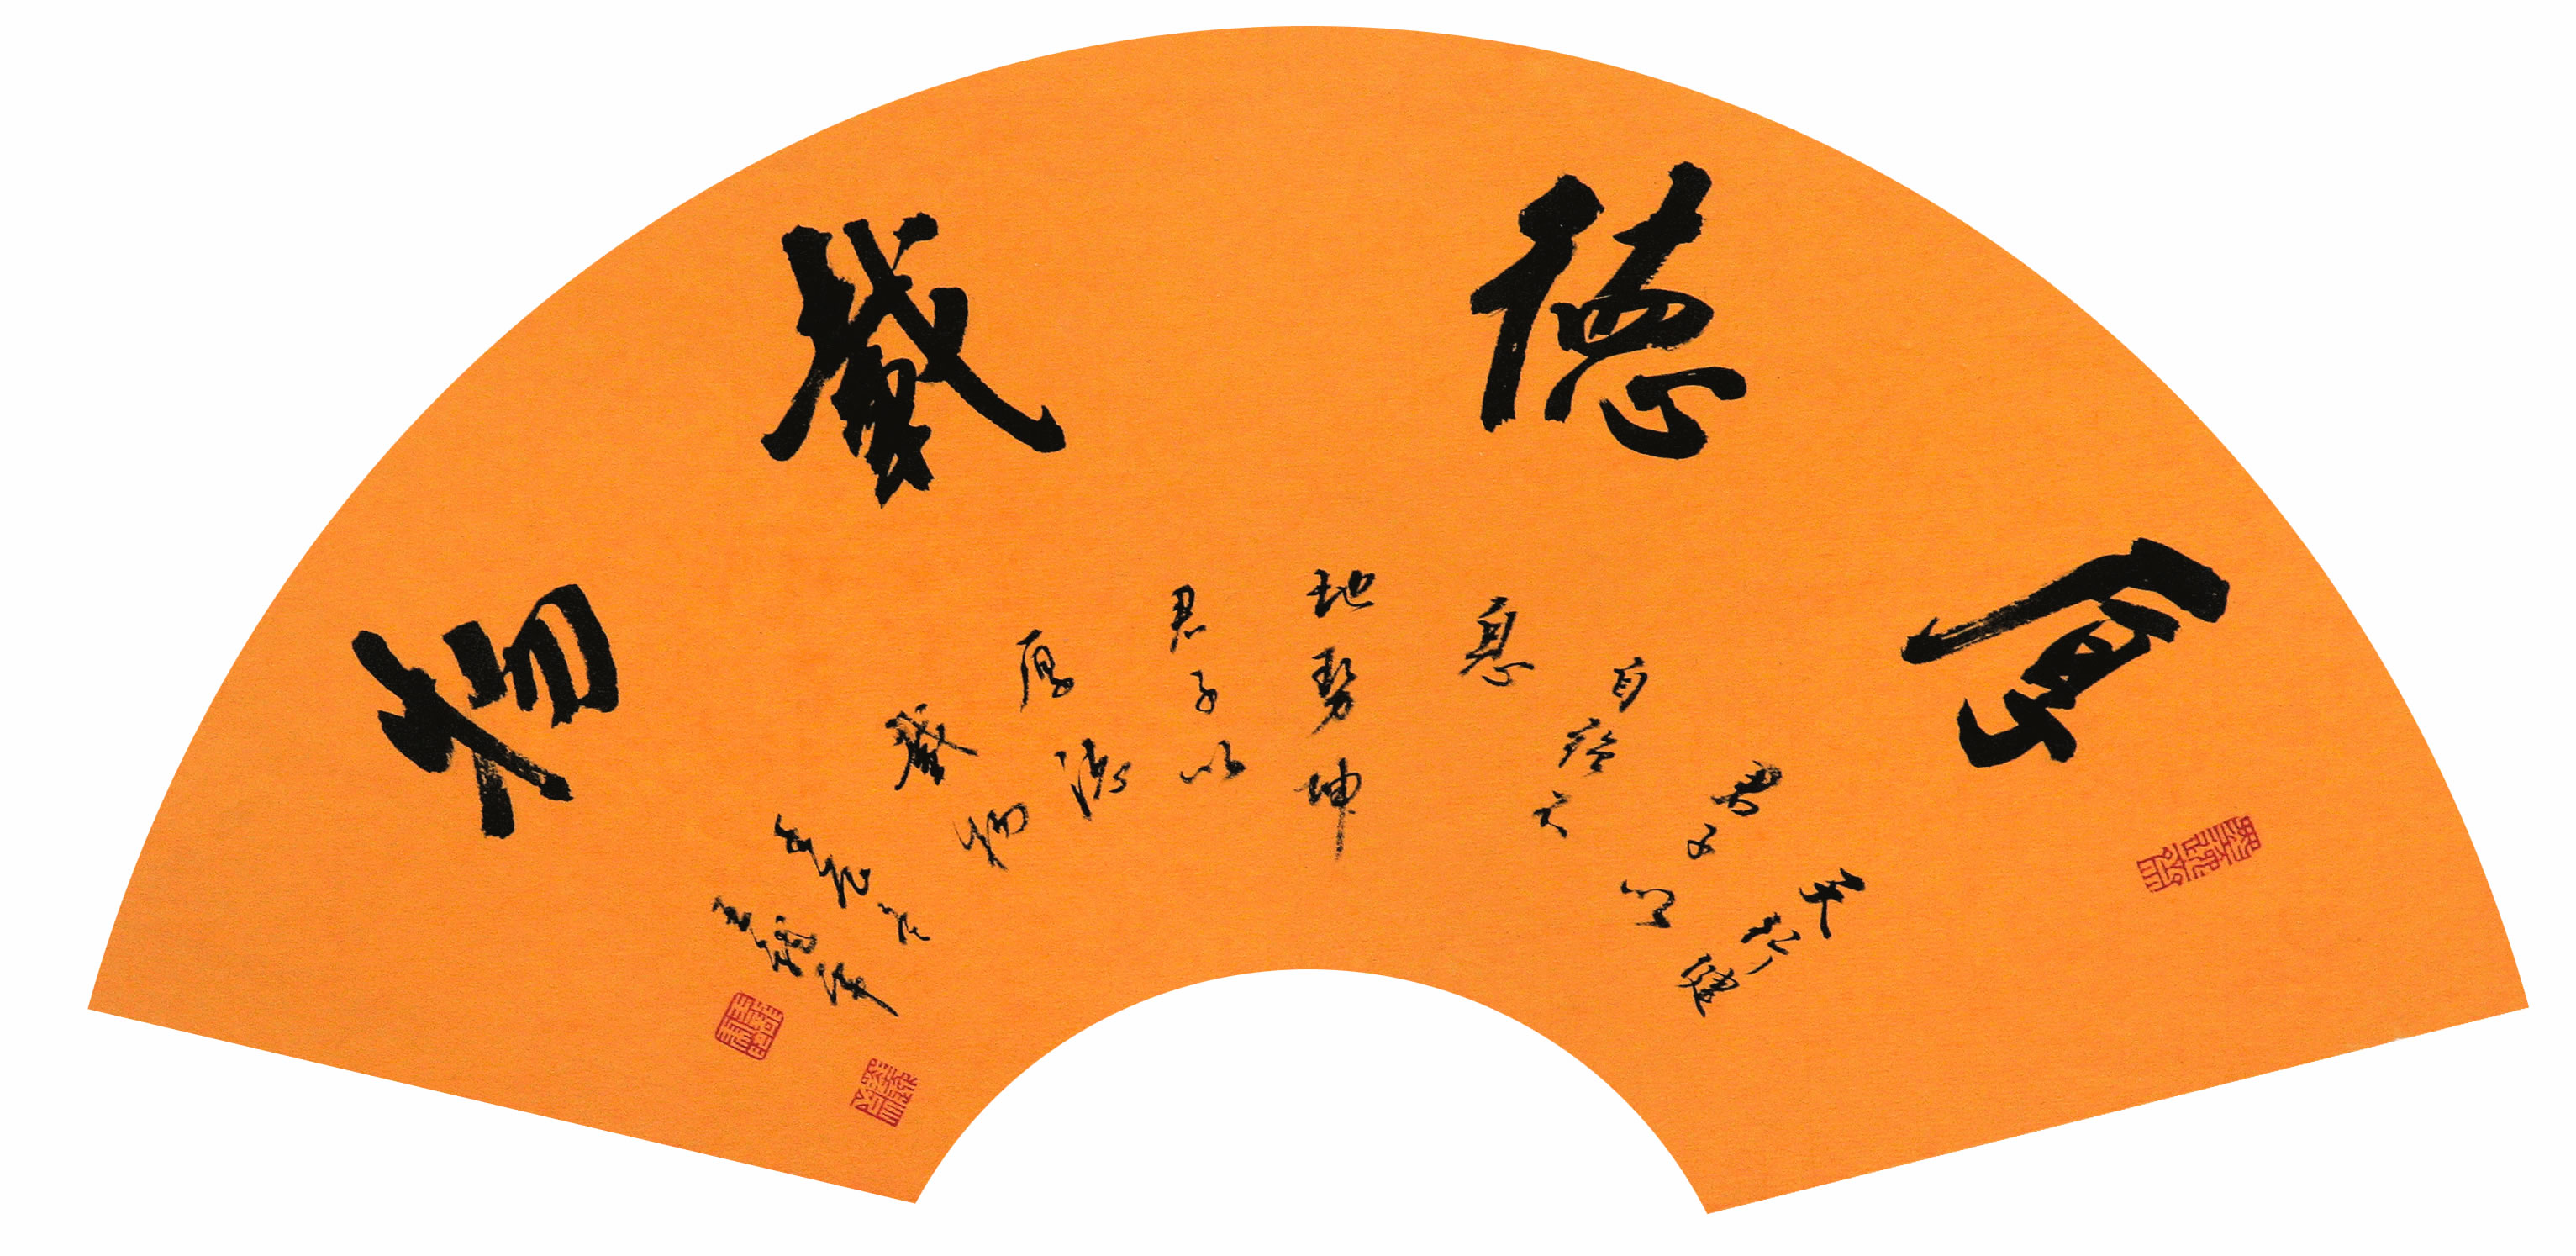 厚德載物
天行健
君子以
自強不
息
地勢坤
君子以
厚德
載物